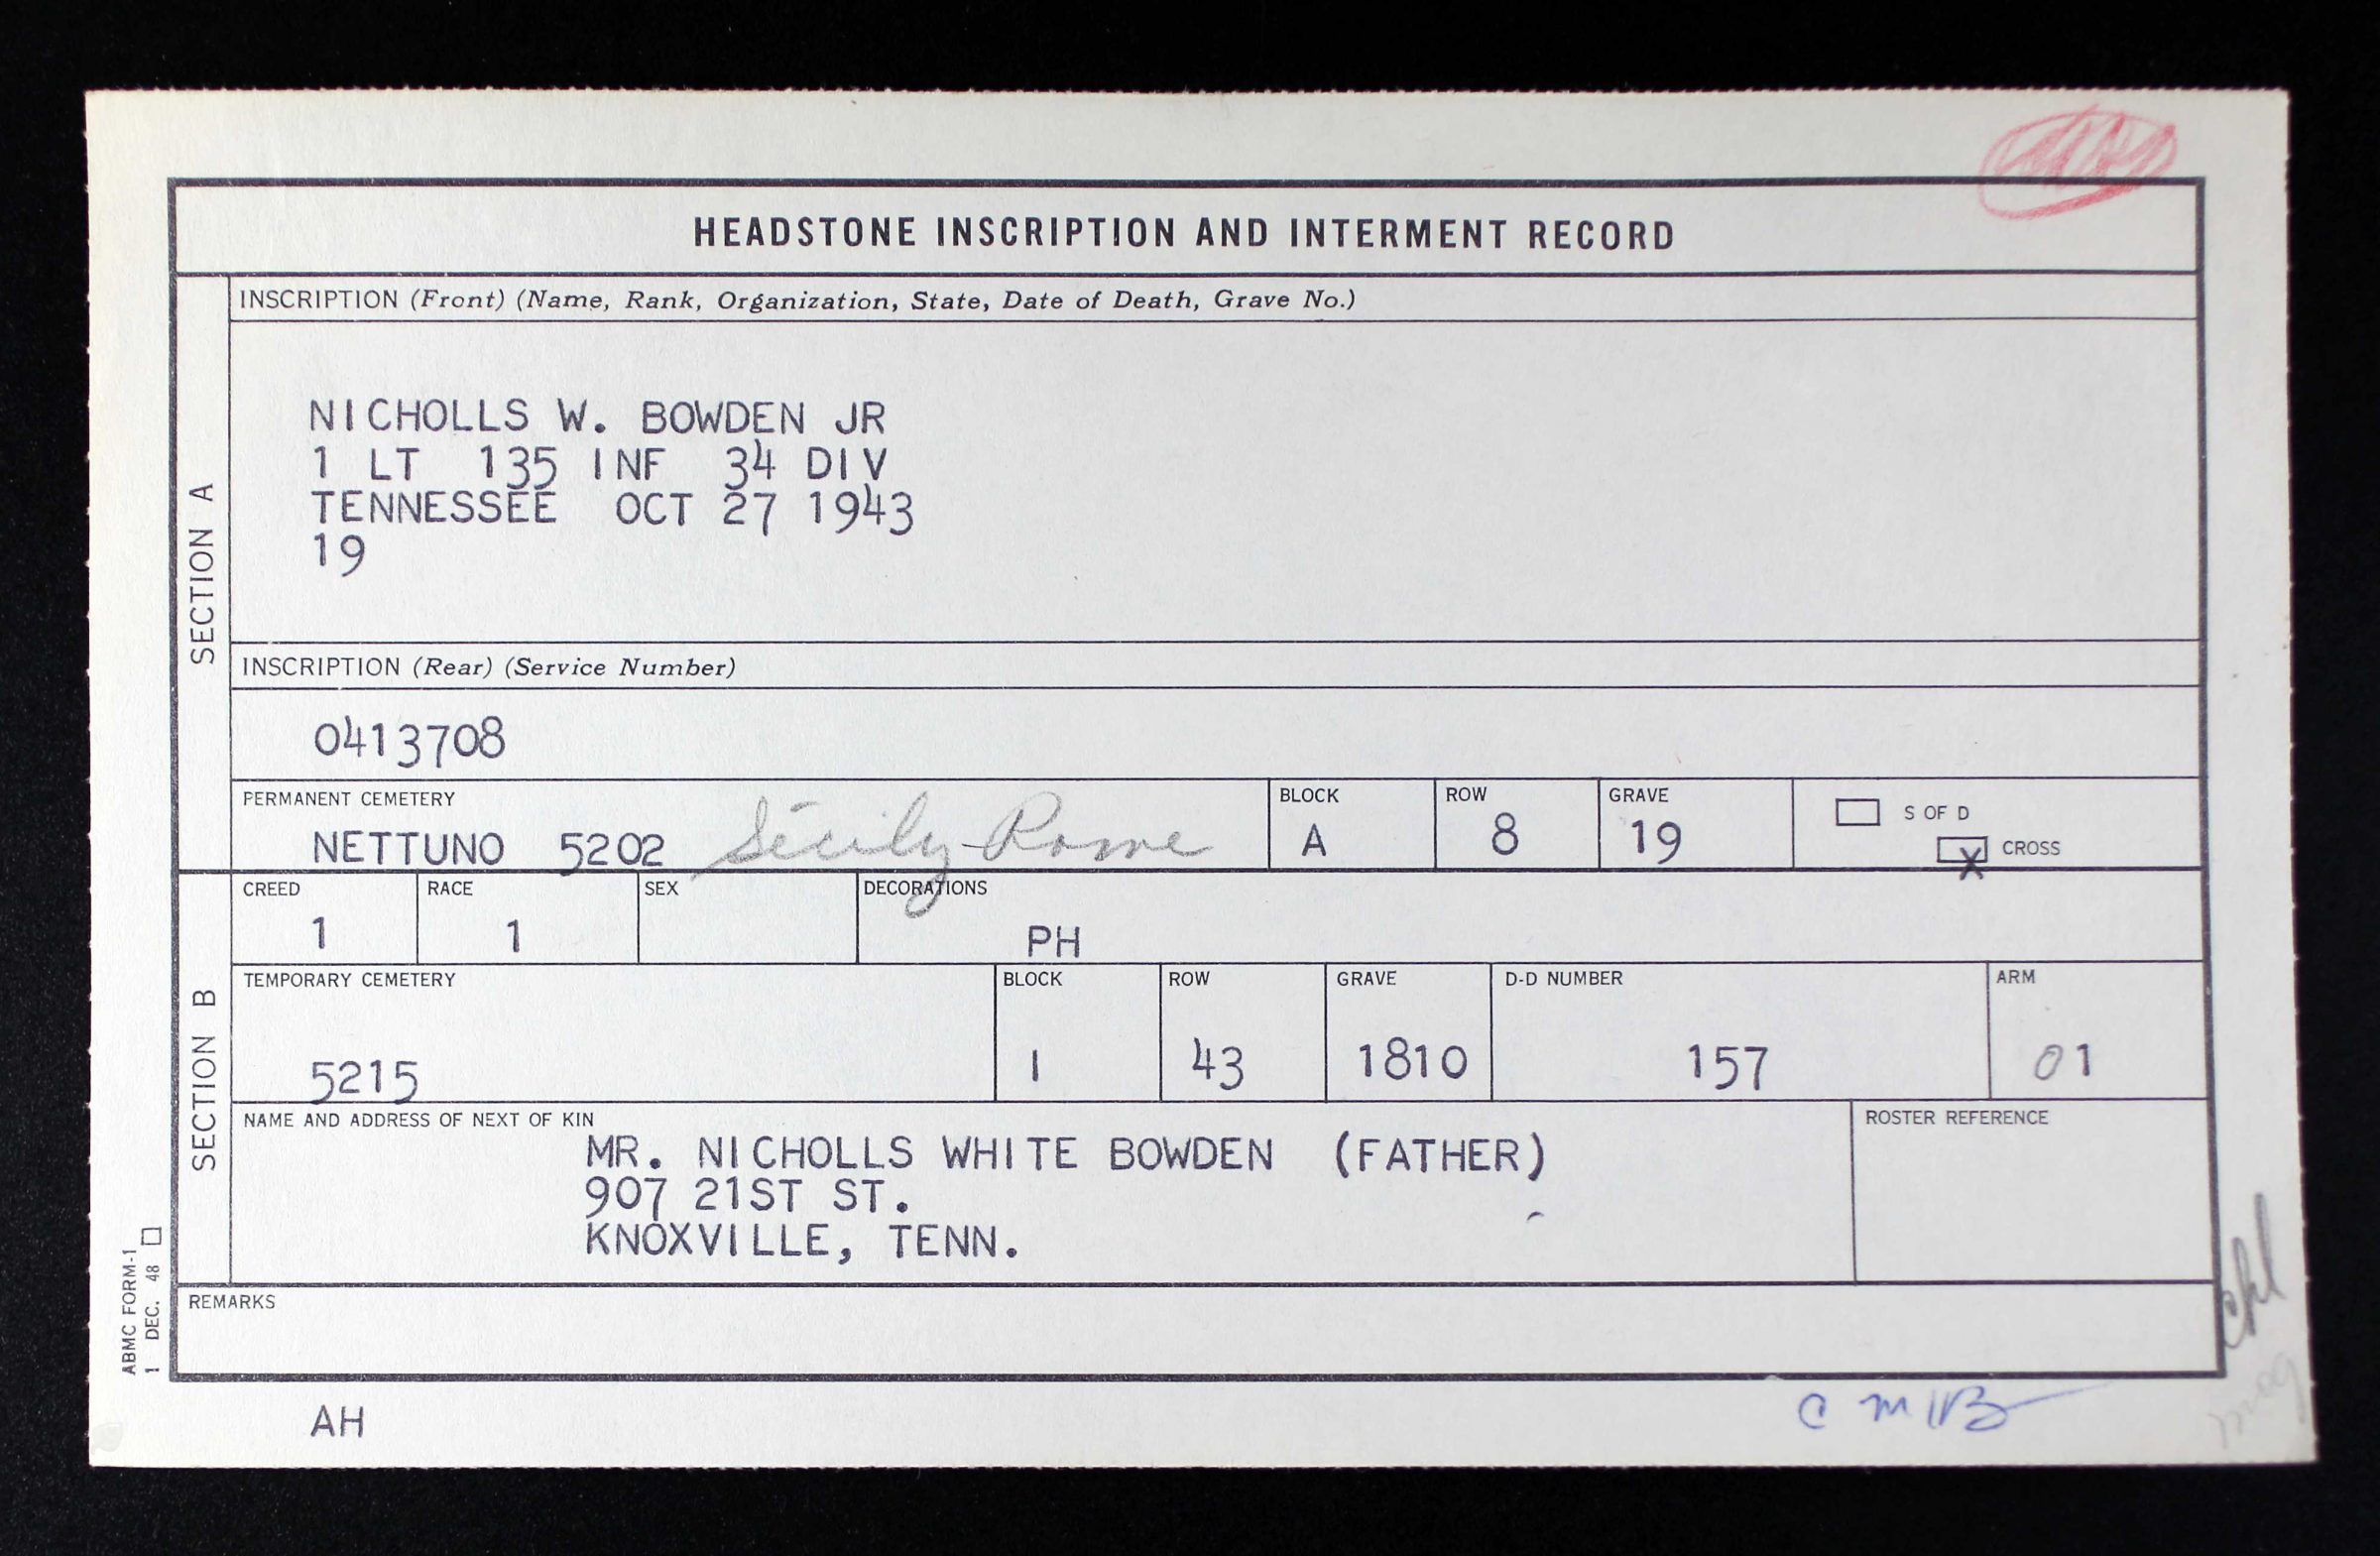 HEADSTONE INSCRIPTION AND INTERMENT RECORD
SECTION A
INSCRIPTION (Front) (Name, Rank, Organization, State, Date of Death, Grave No.)
NICHOLLS W. BOWDEN JR
1 LT 135 INF 34 DIV
TENNESSEE OCT 27 1943
19
INSCRIPTION (Rear) (Service Number)
0413708
PERMANENT CEMETERY BLOCK ROW GRAVE
NETTUNO 5202 Sicily-Rome A 8 19
S OF D
X CROSS
SECTION B
CREED RACE SEX DECORATIONS
1 1 PH
TEMPORARY CEMETERY BLOCK ROW GRAVE D-D NUMBER ARM
5215 1 43 1810 157 01
NAME AND ADDRESS OF NEXT OF KIN ROSTER REFERENCE
MR. NICHOLLS WHITE BOWDEN (FATHER)
907 21ST ST.
KNOXVILLE, TENN.
REMARKS
ABMC FORM-1
1 DEC. 48
AH